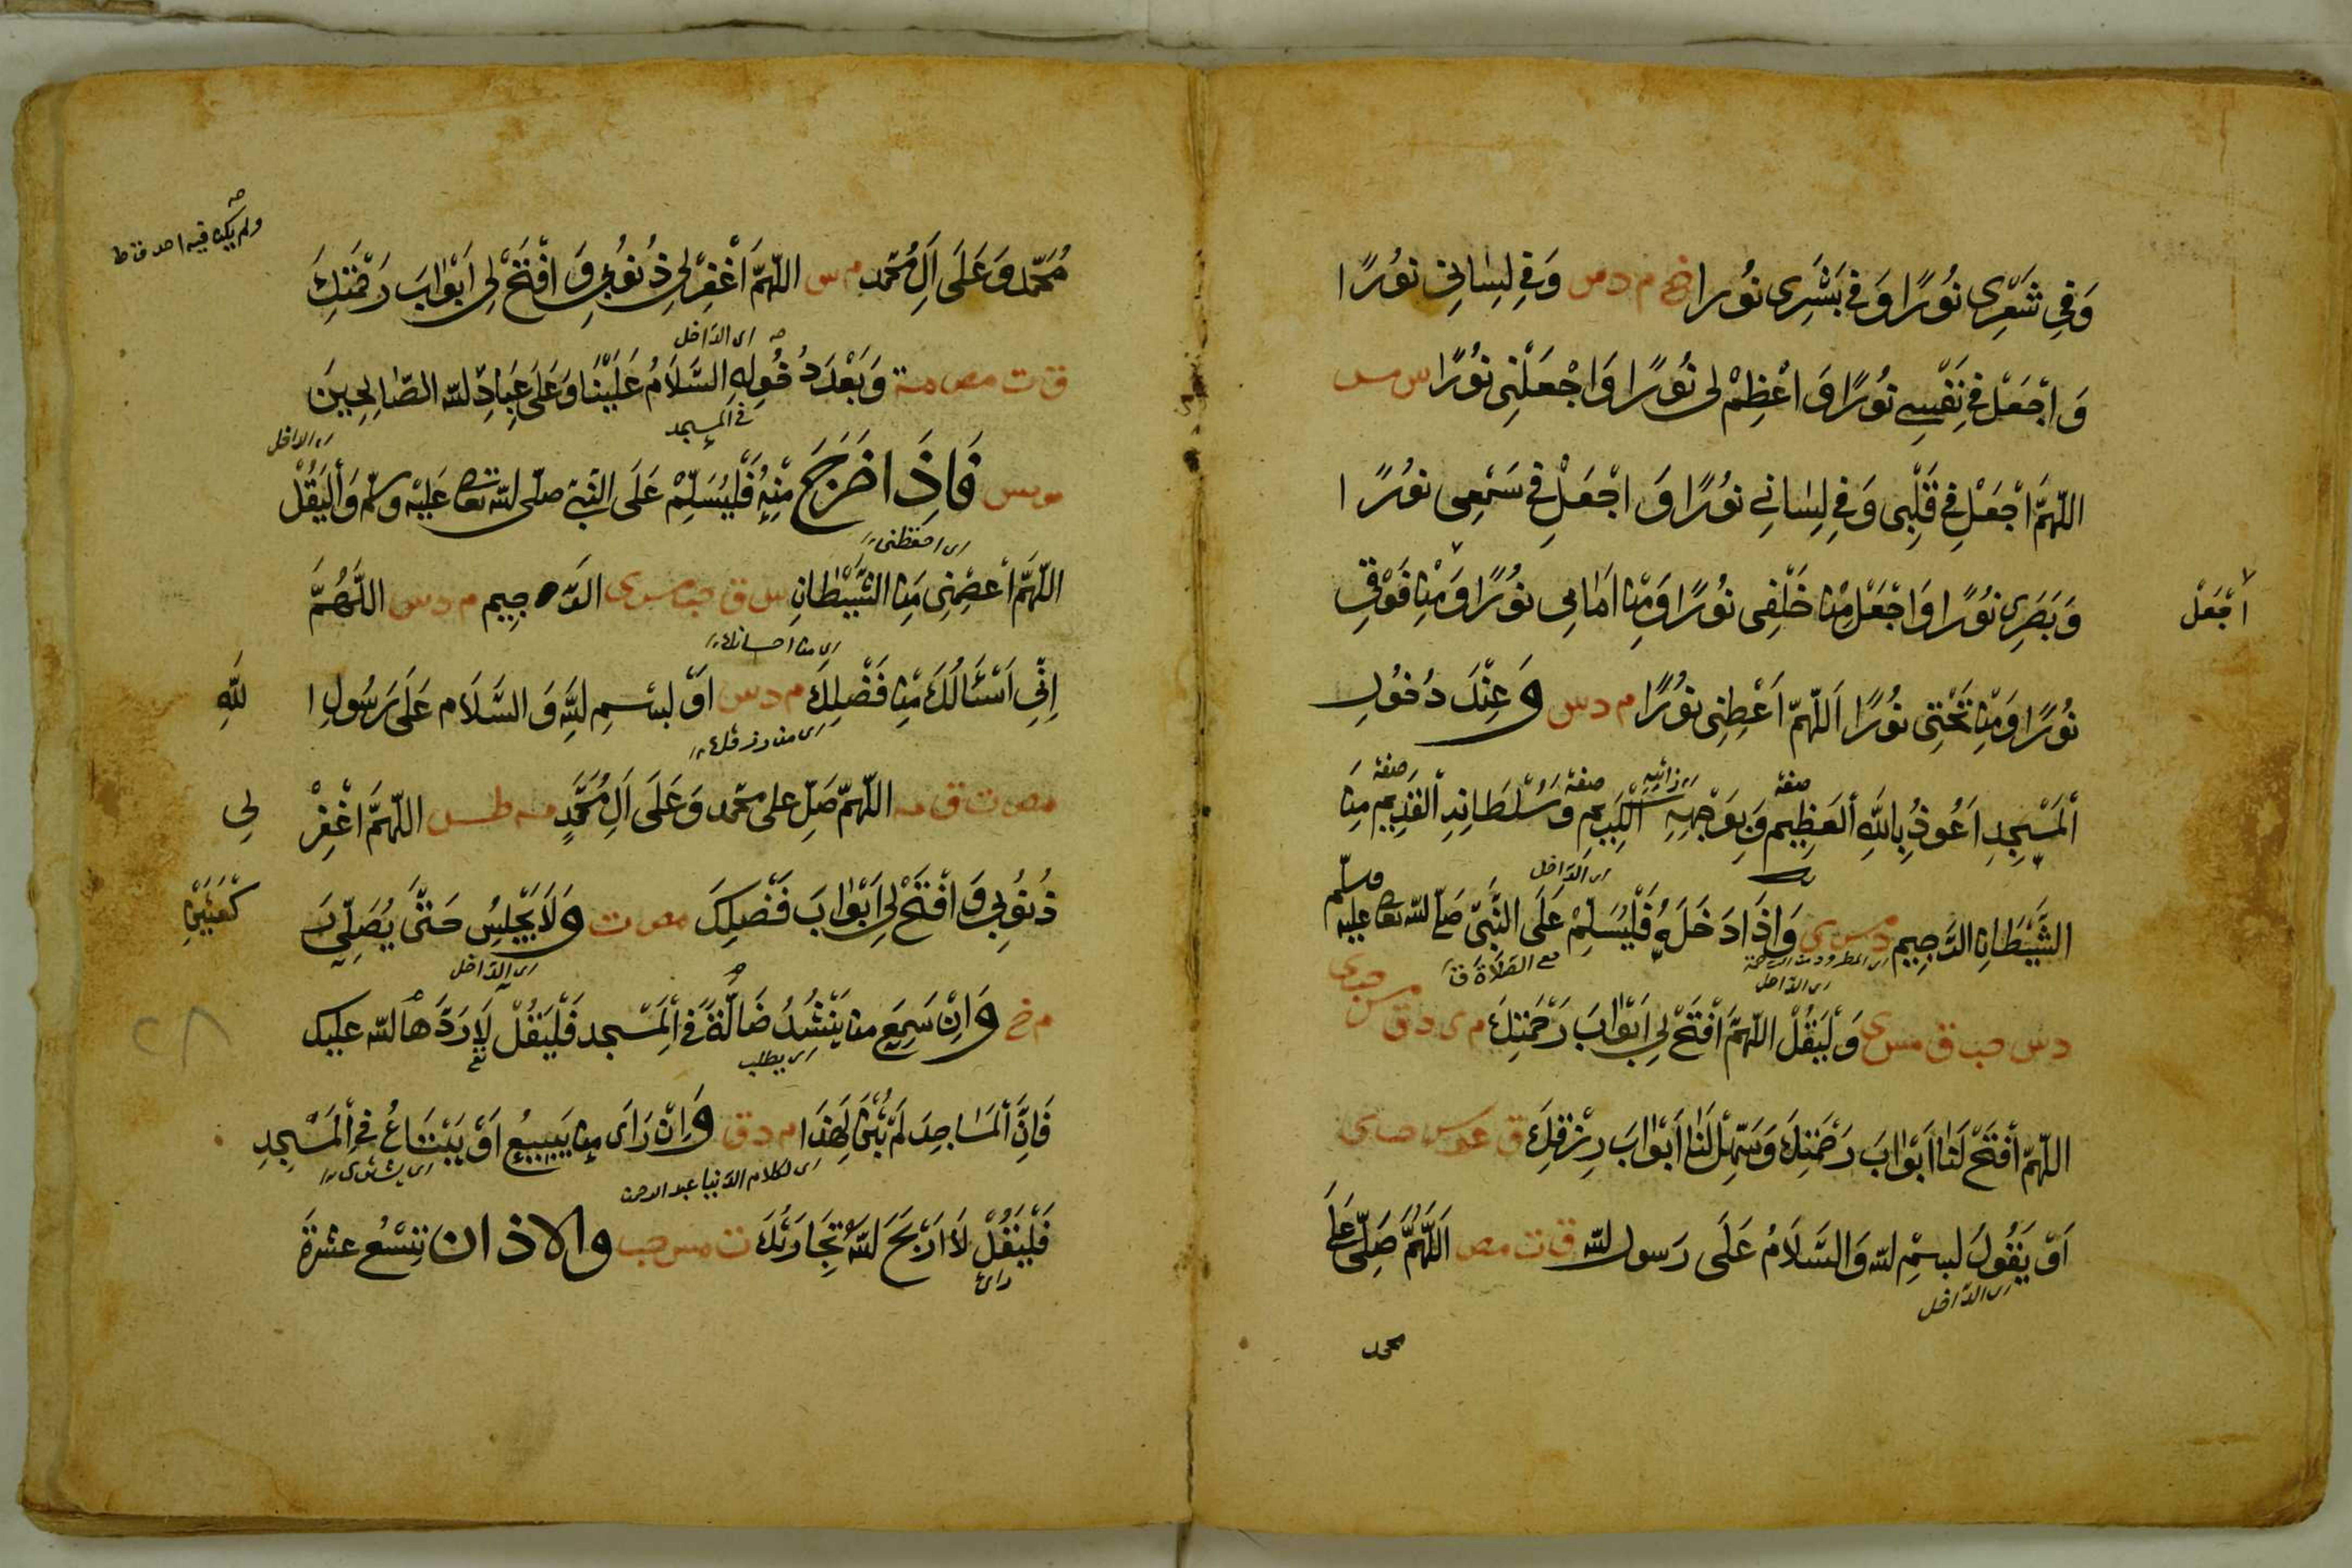 وَفِي شَعْرِي نُورًا وَفِي بَشَرِي نُورًا خ م د س وَفِي لِسَانِي نُورًا
وَاجْعَلْ فِي نَفْسِي نُورًا وَاَعْظِمْ لِي نُورًا وَاجْعَلْنِي نُورًا س مس
اللّهُمَّ اجْعَلْ فِي قَلْبِي وَفِي لِسَانِي نُورًا وَاجْعَلْ فِي سَمْعِي نُورًا
وَبَصَرِي نُورًا وَاجْعَلْ مِنْ خَلْفِي نُورًا وَمِنْ اَمَامِي نُورًا وَمِنْ فَوْقِي
اجْعَلْ
نُورًا وَمِنْ تَحْتِي نُورًا اَللّهُمَّ اَعْطِنِي نُورًا م د س وَعِنْدَ دُخُولِ
صفة ذاتيه صفة صفة
اَلْمَسْجِدِ اَعُوذُ بِاللهِ الْعَظِيمِ وَبِوَجْهِهِ الْكَرِيمِ وَسُلْطَانِهِ الْقَدِيمِ مِنَ
اى الدّاخل
الشَّيْطَانِ الرَّجِيمِ د مس ي وَاِذَا دَخَلَهُ فَلْيُسَلِّمْ عَلَى النَّبِيِّ صَلَّى اللّه تعا عليه وسلّم
اى الداخل مع الصّلاة
د س حب ق مس ي وَلْيَقُلْ اللّهُمَّ افْتَحْ لِي اَبْوَابَ رَحْمَتِكَ م ى د ق س حب ى
اللّهُمَّ افْتَحْ لَنَا اَبْوَابَ رَحْمَتِكَ وَسَهِّلْ لَنَا اَبْوَابَ رِزْقِكَ ق عو
اَوْ يَقُولُ بسمِ الله وَالسَّلَامُ عَلَى رَسول الله ق ت مص اَللّهُمَّ صَلِّ عَلَى
اى الدّاخل
محمد
ولم يكن فيه احد قط
مُحَمَّد وَعَلَى آلِ مُحَمَّد م س اللّهُمَّ اغْفِرْ لِي ذُنُوبِي وَافْتَحْ لِي اَبْوَابَ رَحْمَتِكَ
اى الدّاخل
ق ت مص مة وَبَعْدَ دُخُولِهِ السَّلَامُ عَلَيْنَا وَعَلَى عِبَادِ اللّه الصَّالِحِينَ
فى المسجد
اى الداخل
مو مس فَاِذَا خَرَجَ مِنْهُ فَلْيُسَلِّمْ عَلَى النَّبِيِّ صلّى اللّه تعا عَلَيْهِ وسلّم وَلْيَقُلْ
اى احفظنى
اللّهُمَّ اعْصِمْنِي مِنَ الشَّيْطَانِ س ق حب مس ى الرَّجِيم م د س اللّهُمَّ
اى من احسانك
اِنِّي اَسْئَلُكَ مِنْ فَضْلِكَ م د س اَوْ بِسْمِ اللّهِ وَالسَّلَام عَلَى رَسُولِ ا للّهِ
اى من رزقك
مص ت ق مه اللّهُمَّ صَلِّ على محمّد وَعَلَى آلِ مُحَمَّدٍ مه طس اللّهُمَّ اغْفِرْ لِي
ذُنُوبِي وَافْتَحْ لِي اَبْوَابَ فَضْلِكَ مص ت وَلَا يَجْلِسُ حَتَّى يُصَلِّيَ رَكْعَتَيْنِ
اى الدّاخل
م خ وَاِنْ سَمِعَ من يَنْشُدُ ضَالَّةً فِي الْمَسْجِد فَلْيَقُلْ لَا رَدَّهَا اللّه عليك
اى يطلب
٢٨
فَاِنَّ الْمَسَاجِدَ لَمْ تُبْنَ لِهَذَا م د ق وَاِنْ رَاَى مَنْ يَبِيعُ اَوْ يَبْتَاعُ فِي الْمَسْجِدِ
اى لكلام الدّنيا عبد الرحمن اى يشترى
فَلْيَقُلْ لَا اَرْبَحَ اللّهُ تِجَارَتَكَ ت مس حب والاذان تِسْعَ عشرَةَ